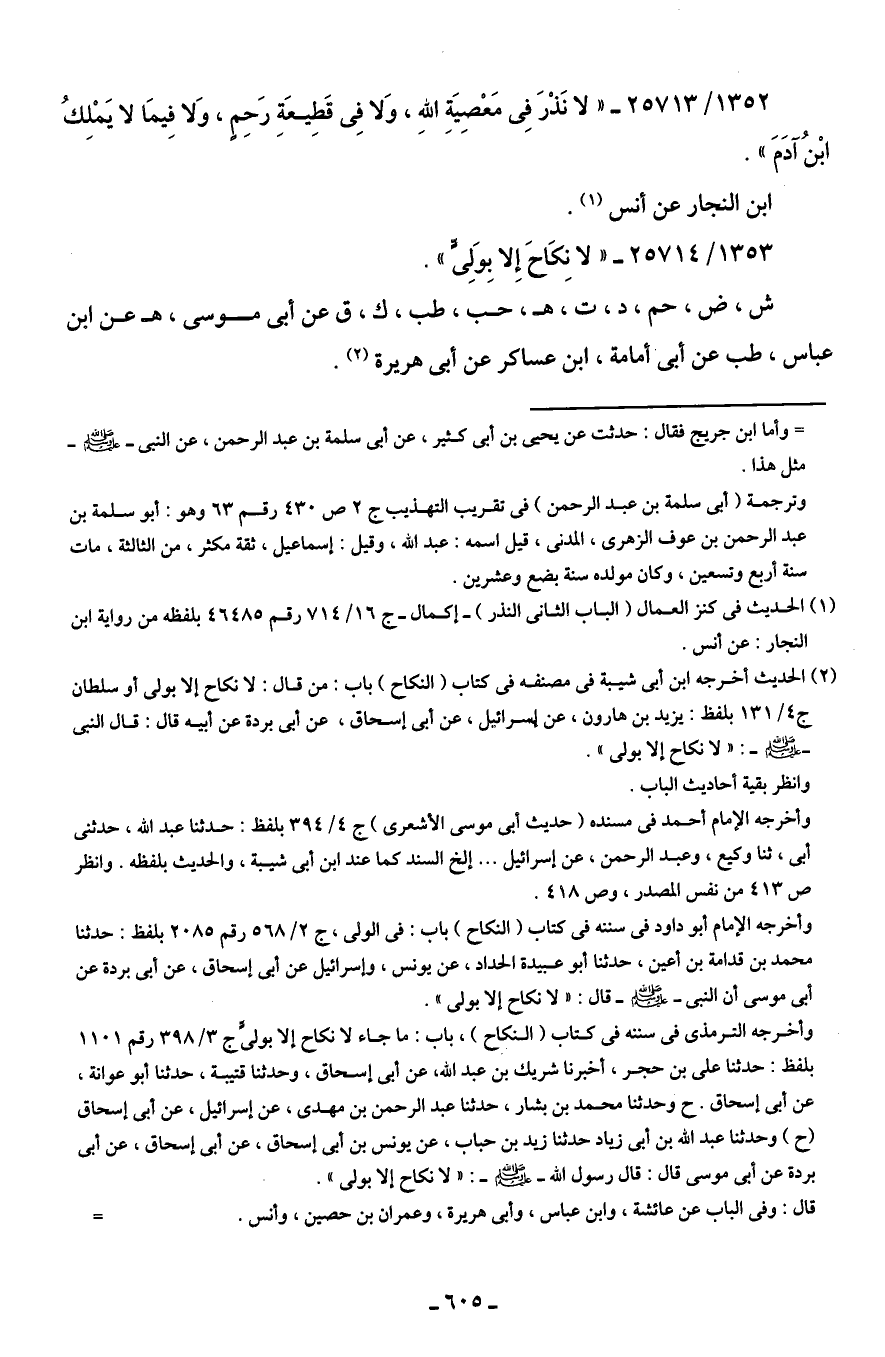 ١٣٥٢/ ٢٥٧١٣ ـ « لا نَذْرَ فِى مَعْصِيَةِ اللهِ ، وَلا فِى قَطِيعَةِ رَحِمٍ ، وَلا فِيمَا لا يَمْلِكُ
ابْنُ آدَمَ » .
ابن النجار عن أنس (١) .
١٣٥٣/ ٢٥٧١٤ ـ « لا نِكَاحَ إِلا بِوَلِىٍّ » .
ش ، ض ، حم ، د ، ت ، هـ ، حـب ، طب ، ك ، ق عن أبى مـوسى ، هـ عـن ابن
عباس ، طب عن أبى أمامة ، ابن عساكر عن أبى هريرة (٢) .
= وأما ابن جريج فقال : حدثت عن يحيى بن أبى كثير ، عن أبى سلمة بن عبد الرحمن ، عن النبى ـ ﷺ ـ
مثل هذا .
وترجمة ( أبى سلمة بن عبد الرحمن ) فى تقريب التهذيب ج ٢ ص ٤٣٠ رقم ٦٣ وهو : أبو سلمة بن
عبد الرحمن بن عوف الزهرى ، المدنى ، قيل اسمه : عبد الله ، وقيل : إسماعيل ، ثقة مكثر ، من الثالثة ، مات
سنة أربع وتسعين ، وكان مولده سنة بضع وعشرين .
(١) الحديث فى كنز العمال ( الباب الثانى النذر ) ـ إكمال ـ ج ١٦/ ٧١٤ رقم ٤٦٤٨٥ بلفظه من رواية ابن
النجار : عن أنس .
(٢) الحديث أخرجه ابن أبى شيبة فى مصنفه فى كتاب ( النكاح ) باب : من قال : لا نكاح إلا بولى أو سلطان
ج٤/ ١٣١ بلفظ : يزيد بن هارون ، عن إسرائيل ، عن أبى إسحاق ، عن أبى بردة عن أبيه قال : قال النبى
ـ ﷺ ـ : « لا نكاح إلا بولى » .
وانظر بقية أحاديث الباب .
وأخرجه الإمام أحمد فى مسنده ( حديث أبى موسى الأشعرى ) ج ٤/ ٣٩٤ بلفظ : حدثنا عبد الله ، حدثنى
أبى ، ثنا وكيع ، وعبد الرحمن ، عن إسرائيل ... إلخ السند كما عند ابن أبى شيبة ، والحديث بلفظه . وانظر
ص ٤١٣ من نفس المصدر ، وص ٤١٨ .
وأخرجه الإمام أبو داود فى سننه فى كتاب ( النكاح ) باب : فى الولى ، ج ٢/ ٥٦٨ رقم ٢٠٨٥ بلفظ : حدثنا
محمد بن قدامة بن أعين ، حدثنا أبو عبيدة الحداد ، عن يونس ، وإسرائيل عن أبى إسحاق ، عن أبى بردة عن
أبى موسى أن النبى ـ ﷺ ـ قال : « لا نكاح إلا بولى » .
وأخرجه الترمذى فى سننه فى كتاب ( النكاح ) ، باب : ما جاء لا نكاح إلا بولىٍّ ج ٣/ ٣٩٨ رقم ١١٠١
بلفظ : حدثنا على بن حجر ، أخبرنا شريك بن عبد الله، عن أبى إسحاق ، وحدثنا قتيبة ، حدثنا أبو عوانة ،
عن أبى إسحاق . ح وحدثنا محمد بن بشار ، حدثنا عبد الرحمن بن مهدى ، عن إسرائيل ، عن أبى إسحاق
(ح ) وحدثنا عبد الله بن أبى زياد حدثنا زيد بن حباب ، عن يونس بن أبى إسحاق ، عن أبى إسحاق ، عن أبى
بردة عن أبى موسى قال : قال رسول الله ـ ﷺ ـ : « لا نكاح إلا بولى » .
قال : وفى الباب عن عائشة ، وابن عباس ، وأبى هريرة ، وعمران بن حصين ، وأنس . =
ـ ٦٠٥ ـ